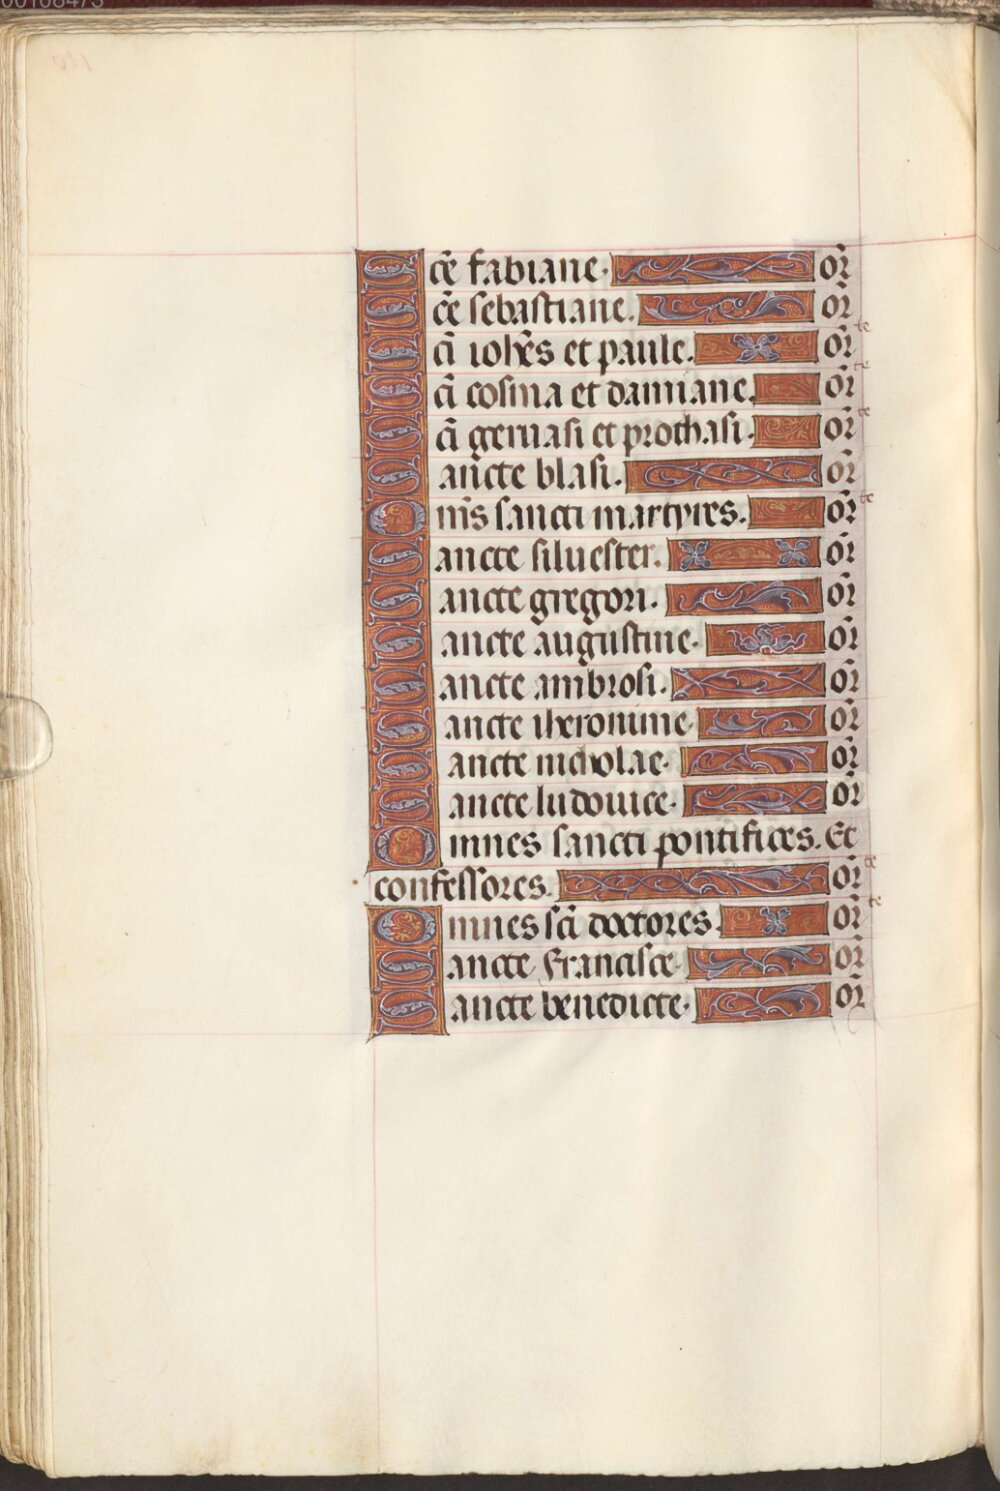 Scē fabiane. or̄
Scē sebastiane. or̄
Sci̅ ioh̅es et paule. or̄te
Sci̅ cosma et damiane. or̄te
Sci̅ geruasi et prothasi. or̄te
Sancte blasi. or̄
Om̅s sancti martyres. or̄te
Sancte siluester. or̄
Sancte gregori. or̄
Sancte augustine. or̄
Sancte ambrosi. or̄
Sancte iheronime. or̄
Sancte nicholae. or̄
Sancte ludouice. or̄
Omnes sancti pontifices. Et
confessores. or̄te
Omnes sci̅ doctores. or̄te
Sancte Francisce. or̄
Sancte benedicte. or̄